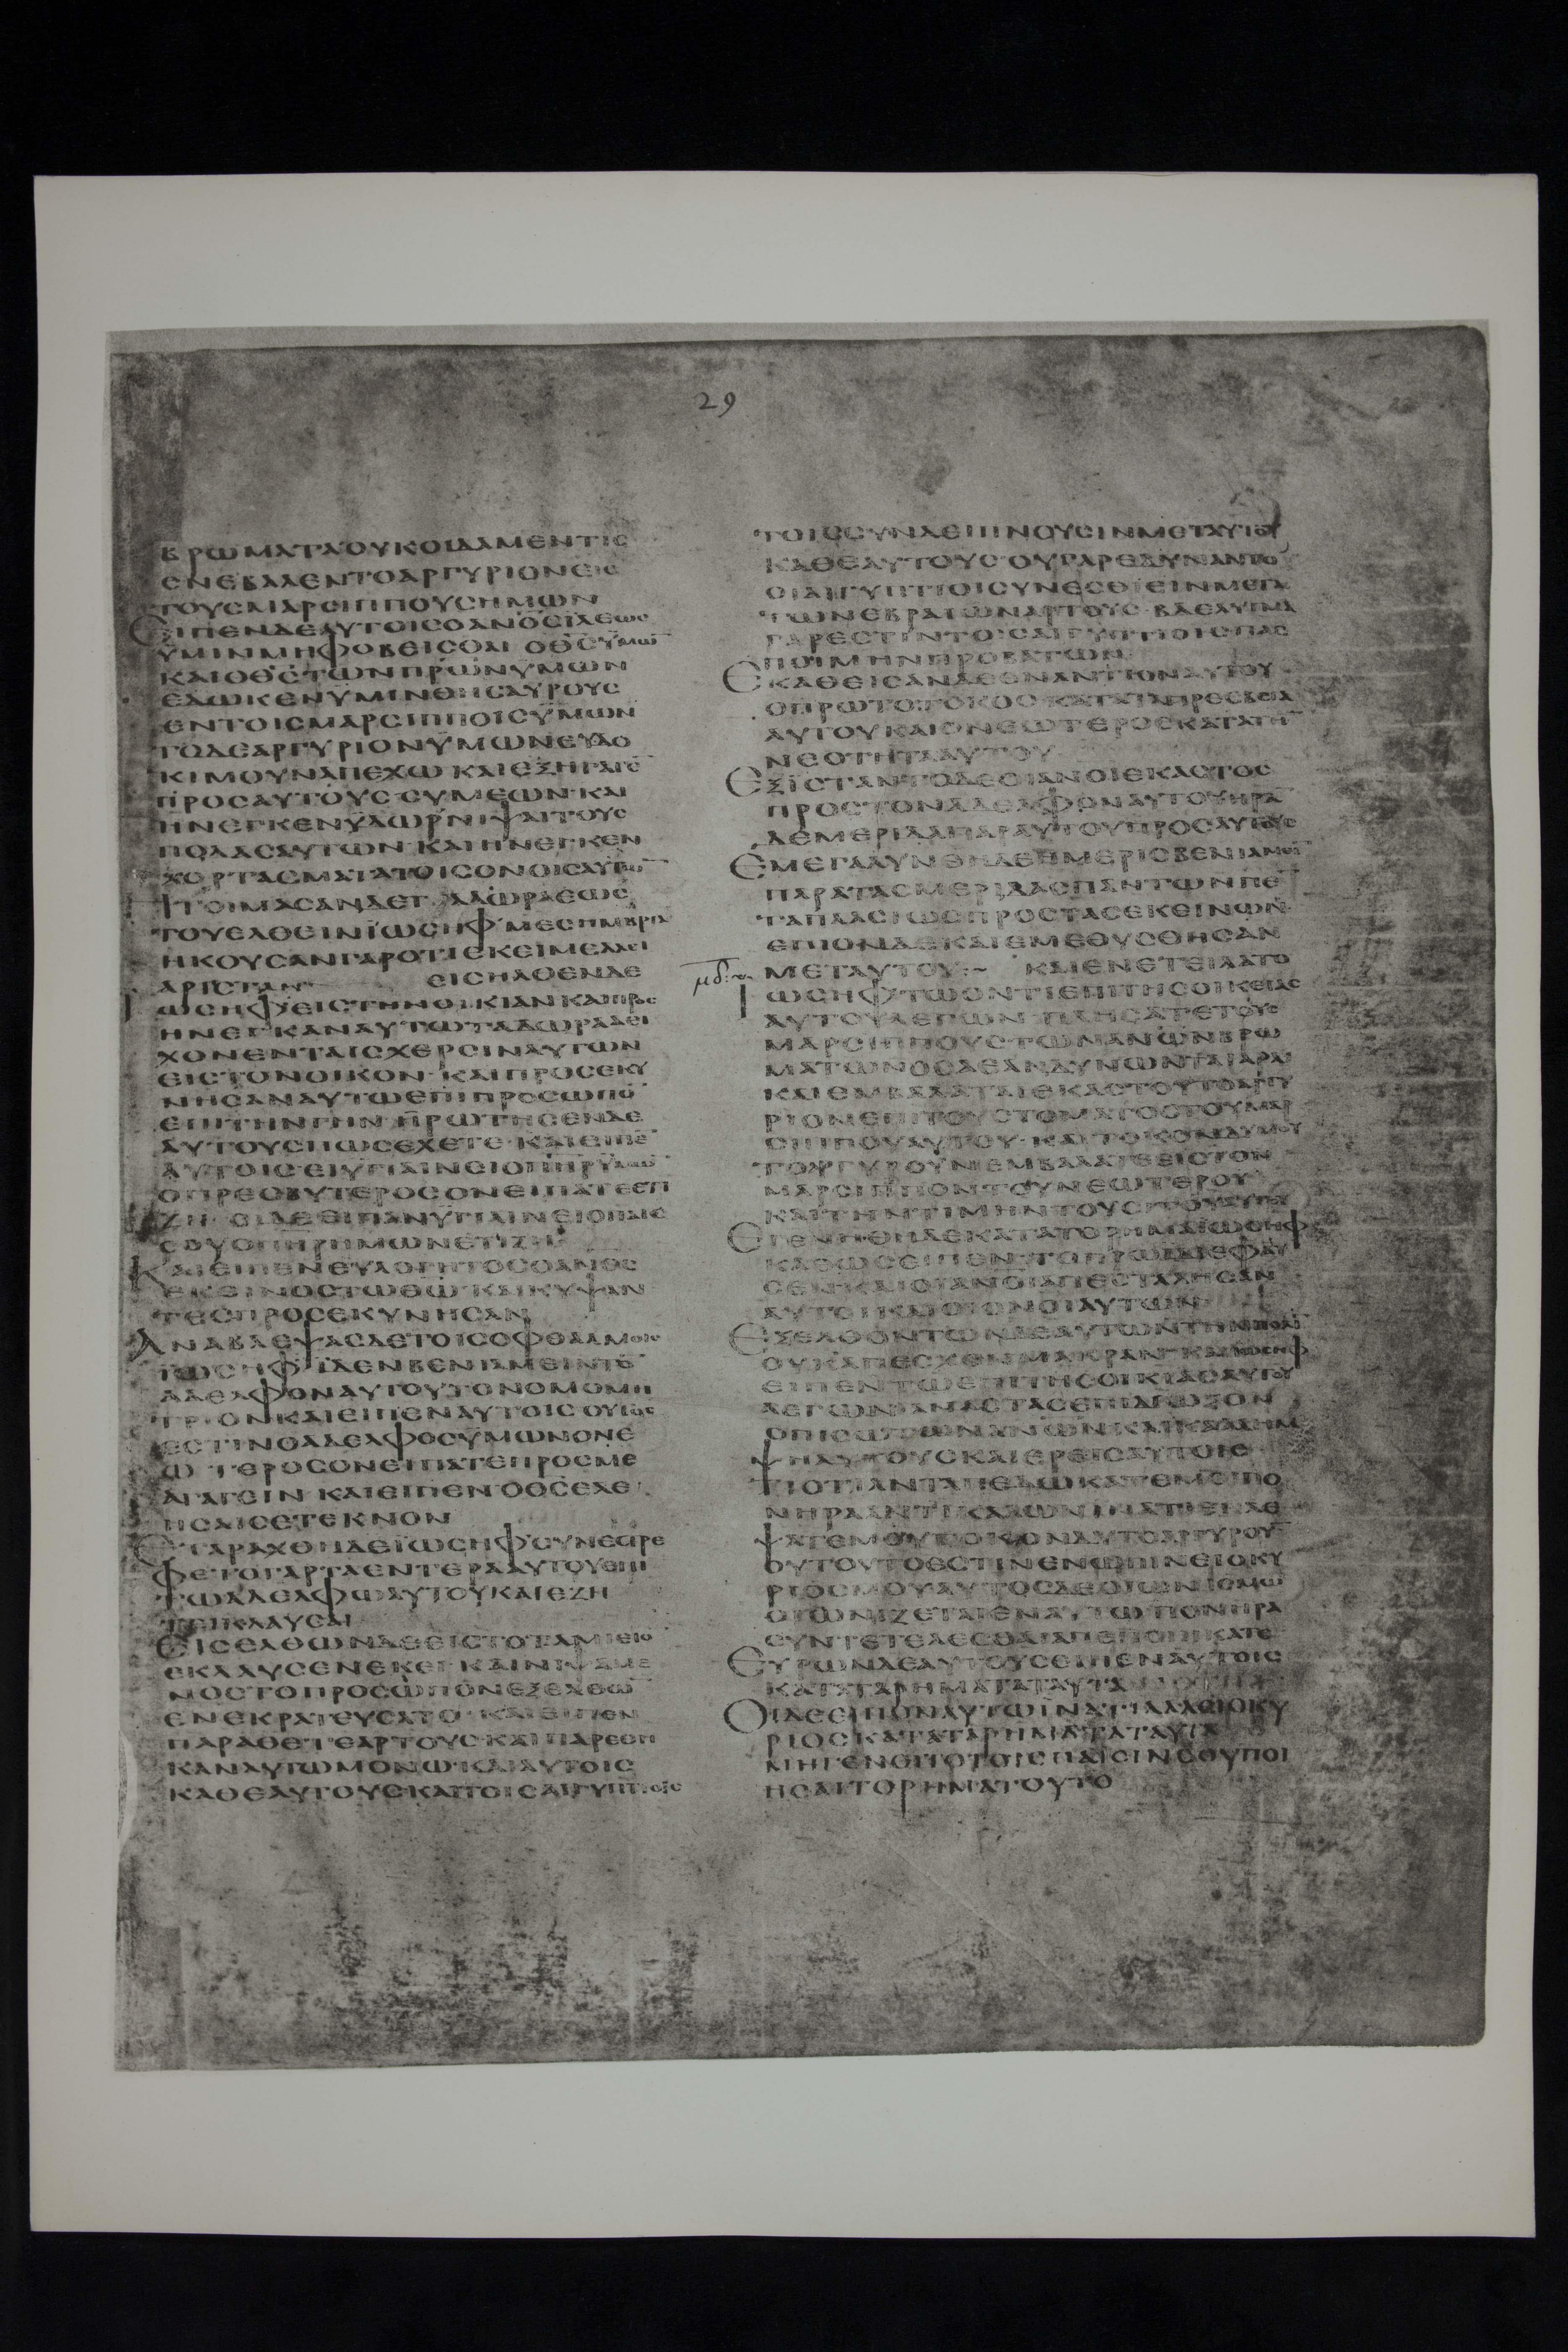 29
ΒΡΩΜΑΤΑΟΥΚΟΙΔΑΜΕΝΤΙϹ
ΕΝΕΒΑΛΕΝΤΟΑΡΓΥΡΙΟΝΕΙϹ
ΤΟΥϹΜΑΡϹΙΠΠΟΥϹΗΜΩΝ
ΕΙΠΕΝΔΕΑΥΤΟΙϹΟΑΝΟϹΪΛΕΩϹ
ΥΜΙΝΜΗΦΟΒΕΙϹΘΑΙ ΟΘϹΥΜΩ̅
ΚΑΙΟΘϹΤΩΝΠΡΩΝΥΜΩΝ
ΕΔΩΚΕΝΥΜΙΝΘΗϹΑΥΡΟΥϹ
ΕΝΤΟΙϹΜΑΡϹΙΠΠΟΙϹΥΜΩΝ
ΤΟΔΕΑΡΓΥΡΙΟΝΥΜΩΝΕΥΔΟ
ΚΙΜΟΥΝΑΠΕΧΩ ΚΑΙΕΞΗΓΑΓΕ̅
ΠΡΟϹΑΥΤΟΥϹ ϹΥΜΕΩΝ ΚΑΙ
ΗΝΕΓΚΕΝΫΔΩΡΝΙΨΑΙΤΟΥϹ
ΠΟΔΑϹΑΥΤΩΝ ΚΑΙΗΝΕΓΚΕΝ
ΧΟΡΤΑϹΜΑΤΑΤΟΙϹΟΝΟΙϹΑΥΤΩ̅
ΗΤΟΙΜΑϹΑΝΔΕΤΑΔΩΡΑΕΩϹ
ΤΟΥΕΛΘΕΙΝΪΩϹΗΦΜΕϹΗΜΒΡΙΑ
ΗΚΟΥϹΑΝΓΑΡΟΤΙΕΚΕΙΜΕΛΛΕΙ
ΑΡΙϹΤΑΝ ΕΙϹΗΛΘΕΝΔΕ
ΙΩϹΗΦΕΙϹΤΗΝΟΙΚΙΑΝΚΑΙΠΡΟϹ
ΗΝΕΓΚΑΝΑΥΤΩΤΑΔΩΡΑΑΕΙ
ΧΟΝΕΝΤΑΙϹΧΕΡϹΙΝΑΥΤΩΝ
ΕΙϹΤΟΝΟΙΚΟΝ ΚΑΙΠΡΟϹΕΚΥ
ΝΗϹΑΝΑΥΤΩΕΠΙΠΡΟϹΩΠΟ̅
ΕΠΙΤΗΝΓΗΝ ΗΡΩΤΗϹΕΝΔΕ
ΑΥΤΟΥϹΠΩϹΕΧΕΤΕ ΚΑΙΕΙΠΕ̅
ΑΥΤΟΙϹΕΙΫΓΙΑΙΝΕΙΟΠΗΡΥΜΩ̅
ΟΠΡΕϹΒΥΤΕΡΟϹΟΝΕΙΠΑΤΕΕΤΙ
ΖΗ ΟΙΔΕΕΙΠΑΝΥΓΙΑΙΝΕΙΟΠΑΙϹ
ϹΟΥΟΠΗΡΗΜΩΝΕΤΙΖΗ
ΚΑΙΕΙΠΕΝΕΥΛΟΓΗΤΟϹΟΑΝΟϹ
ΕΚΕΙΝΟϹΤΩΘΩ ΚΑΙΚΥΨΑΝ
ΤΕϹΠΡΟϹΕΚΥΝΗϹΑΝ
ΑΝΑΒΛΕΨΑϹΔΕΤΟΙϹΟΦΘΑΛΜΟΙϹ
ΪΩϹΗΦ ΪΔΕΝΒΕΝΙΑΜΕΙΝΤΟ̅
ΑΔΕΛΦΟΝΑΥΤΟΥΤΟΝΟΜΟΜΗ
ΤΡΙΟΝΚΑΙΕΙΠΕΝΑΥΤΟΙϹΟΥΤΟϹ
ΕϹΤΙΝΟΑΔΕΛΦΟϹΥΜΩΝΟΝΕ
ΩΤΕΡΟϹΟΝΕΙΠΑΤΕΠΡΟϹΜΕ
ΑΓΑΓΕΙΝ ΚΑΙΕΙΠΕΝ ΟΘϹΕΛΕ
ΗϹΑΙϹΕΤΕΚΝΟΝ
ΕΤΑΡΑΧΘΗΔΕΪΩϹΗΦϹΥΝΕϹΤΡΕ
ΦΕΤΟΓΑΡΤΑΕΝΤΕΡΑΑΥΤΟΥΕΠΙ
ΤΩΑΔΕΛΦΩΑΥΤΟΥΚΑΙΕΖΗ
ΤΕΙΚΛΑΥϹΑΙ
ΕΙϹΕΛΘΩΝΔΕΕΙϹΤΟΤΑΜΙΕΙΟ̅
ΕΚΛΑΥϹΕΝΕΚΕΙ ΚΑΙΝΙΨΑΜΕ
ΝΟϹΤΟΠΡΟϹΩΠΟΝΕΞΕΛΘΩ̅
ΕΝΕΚΡΑΤΕΥϹΑΤΟ ΚΑΙΕΙΠΕΝ
ΠΑΡΑΘΕΤΕΑΡΤΟΥϹ ΚΑΙΠΑΡΕΘΗ
ΚΑΝΑΥΤΩΜΟΝΩΚΑΙΑΥΤΟΙϹ
ΚΑΘΕΑΥΤΟΥϹΚΑΙΤΟΙϹΑΙΓΥΠΤΙΟΙϹ
ΤΟΙϹϹΥΝΔΕΙΠΝΟΥϹΙΝΜΕΤΑΥΤΟΥ
ΚΑΘΕΑΥΤΟΥϹ ΟΥΓΑΡΕΔΥΝΑΝΤΟ
ΟΙΑΙΓΥΠΤΙΟΙϹΥΝΕϹΘΙΕΙΝΜΕΤΑ
ΤΩΝΕΒΡΑΙΩΝΑΡΤΟΥϹ ΒΔΕΛΥΓΜΑ
ΓΑΡΕϹΤΙΝΤΟΙϹΑΙΓΥΠΤΙΟΙϹΠΑϹ
ΠΟΙΜΗΝΠΡΟΒΑΤΩΝ
ΕΚΑΘΕΙϹΑΝΔΕΕΝΑΝΤΙΟΝΑΥΤΟΥ
ΟΠΡΩΤΟΤΟΚΟϹ ΚΑΤΑΤΑΠΡΕϹΒΕΙΑ
ΑΥΤΟΥΚΑΙΟΝΕΩΤΕΡΟϹΚΑΤΑΤΗ̅
ΝΕΟΤΗΤΑΑΥΤΟΥ
ΕΞΙϹΤΑΝΤΟΔΕΟΙΑΝΟΙΕΚΑϹΤΟϹ
ΠΡΟϹΤΟΝΑΔΕΛΦΟΝΑΥΤΟΥΗΡΑ̅
ΔΕΜΕΡΙΔΑΠΑΡΑΥΤΟΥΠΡΟϹΑΥΤΟΥϹ
ΕΜΕΓΑΛΥΝΘΗΔΕΗΜΕΡΙϹΒΕΝΙΑΜΕΙ̅
ΠΑΡΑΤΑϹΜΕΡΙΔΑϹΠΑΝΤΩΝΠΕ̅
ΤΑΠΛΑϹΙΩϹΠΡΟϹΤΑϹΕΚΕΙΝΩΝ
ΕΠΙΟΝΔΕΚΑΙΕΜΕΘΥϹΘΗϹΑΝ
μδ ΜΕΤΑΥΤΟΥ:~ ΚΑΙΕΝΕΤΕΙΛΑΤΟ
ΙΩϹΗΦΤΩΟΝΤΙΕΠΙΤΗϹΟΙΚΕΙΑϹ
ΑΥΤΟΥΛΕΓΩΝ ΠΛΗϹΑΤΕΤΟΥϹ
ΜΑΡϹΙΠΠΟΥϹΤΩΝΑΝΩΝΒΡΩ
ΜΑΤΩΝΟϹΑΕΑΝΔΥΝΩΝΤΑΙΑΡΑΙ
ΚΑΙΕΜΒΑΛΑΤΑΙΕΚΑϹΤΟΥΤΟΑΡΓΥ
ΡΙΟΝΕΠΙΤΟΥϹΤΟΜΑΤΟϹΤΟΥΜΑΡ
ϹΙΠΠΟΥΑΥΤΟΥ ΚΑΙΤΟΚΟΝΔΥΜΟΥ
ΤΟΑΡΓΥΡΟΥΝΕΜΒΑΛΑΤΕΕΙϹΤΟΝ
ΜΑΡϹΙΠΠΟΝΤΟΥΝΕΩΤΕΡΟΥ
ΚΑΙΤΗΝΤΙΜΗΝΤΟΥϹΙΤΟΥΑΥΤΟΥ
ΕΓΕΝΗΘΗΔΕΚΑΤΑΤΟΡΗΜΑΪΩϹΗΦ
ΚΑΘΩϹΕΙΠΕΝ ΤΟΠΡΩΙΔΙΕΦΑΥ
ϹΕΝΚΑΙΟΙΑΝΟΙΑΠΕϹΤΑΛΗϹΑΝ
ΑΥΤΟΙΚΑΙΟΙΟΝΟΙΑΥΤΩΝ
ΕΞΕΛΘΟΝΤΩΝΔΕΑΥΤΩΝΤΗΝΠΟΛΙ̅
ΟΥΚΑΠΕϹΧΟΝΜΑΚΡΑΝ ΚΑΙΙΩϹΗΦ
ΕΙΠΕΝΤΩΕΠΙΤΗϹΟΙΚΙΑϹΑΥΤΟΥ
ΛΕΓΩΝΑΝΑϹΤΑϹΕΠΙΔΙΩΞΟΝ
ΟΠΙϹΩΤΩΝΑΝΩΝΚΑΙΚΑΤΑΛΗΜ
ΨΗΑΥΤΟΥϹΚΑΙΕΡΕΙϹΑΥΤΟΙϹ
ΤΙΟΤΙΑΝΤΑΠΕΔΩΚΑΤΕΜΟΙΠΟ
ΝΗΡΑΑΝΤΙΚΑΛΩΝΙΝΑΤΙΕΚΛΕ
ΨΑΤΕΜΟΥΤΟΚΟΝΔΥΤΟΑΡΓΥΡΟΥ̅
ΟΥΤΟΥΤΟΕϹΤΙΝΕΝΩΠΙΝΕΙΟΚΥ
ΡΙΟϹΜΟΥΑΥΤΟϹΔΕΟΙΩΝΙϹΜΩ
ΟΙΩΝΙΖΕΤΑΙΕΝΑΥΤΩΠΟΝΗΡΑ
ϹΥΝΤΕΤΕΛΕϹΘΑΙΑΠΕΠΟΙΗΚΑΤΕ
ΕΥΡΩΝΔΕΑΥΤΟΥϹΕΙΠΕΝΑΥΤΟΙϹ
ΚΑΤΑΤΑΡΗΜΑΤΑΤΑΥΤΑ
ΟΙΔΕΕΙΠΟΝΑΥΤΩΪΝΑΤΙΛΑΛΕΙΟΚΥ
ΡΙΟϹΚΑΤΑΤΑΡΗΜΑΤΑΤΑΥΤΑ
ΜΗΓΕΝΟΙΤΟΤΟΙϹΠΑΙϹΙΝϹΟΥΠΟΙ
ΗϹΑΙΤΟΡΗΜΑΤΟΥΤΟ